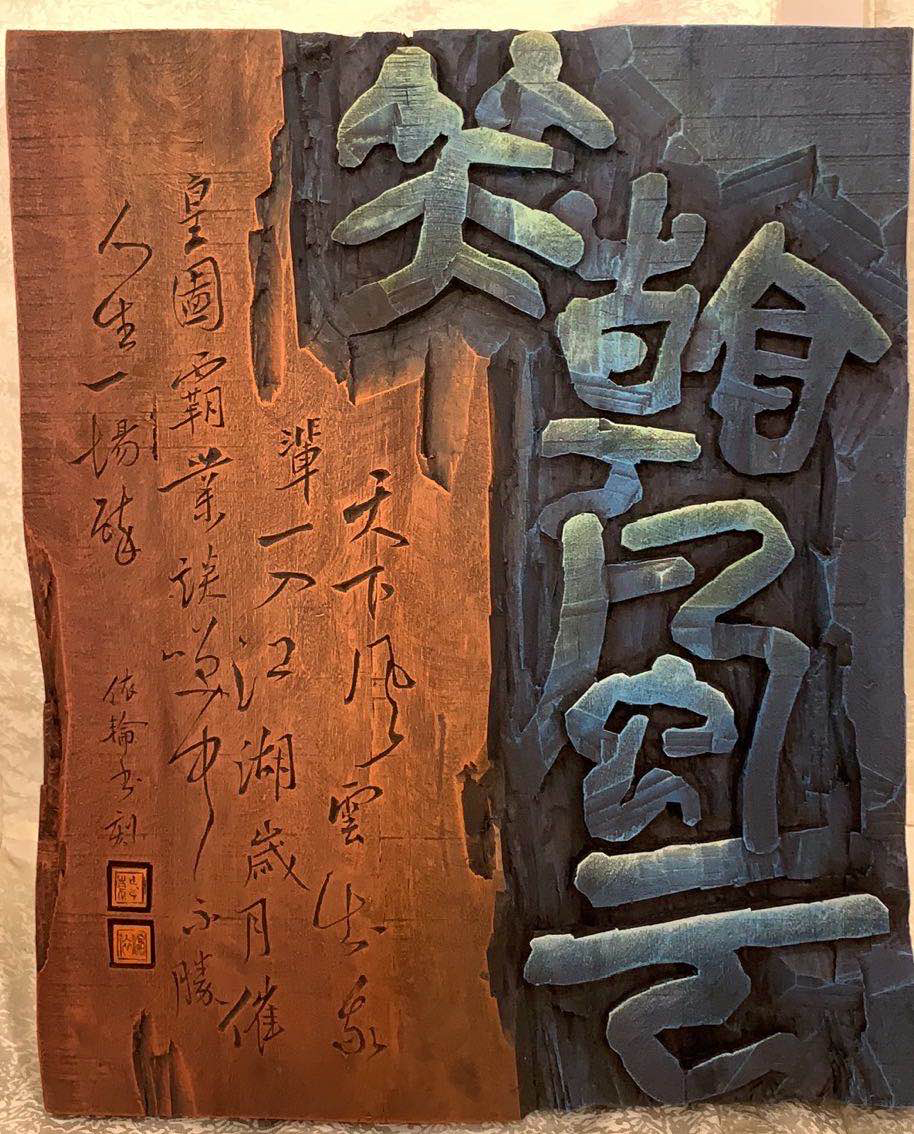 笑看風云
天下風雲出我
輩一入江湖歲月催
皇圖霸業談笑中不勝
人生一場醉
依輪書刻